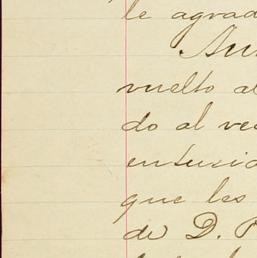 le agrad
Au
vuelto a
do al ve
entusia
que les
de D. P